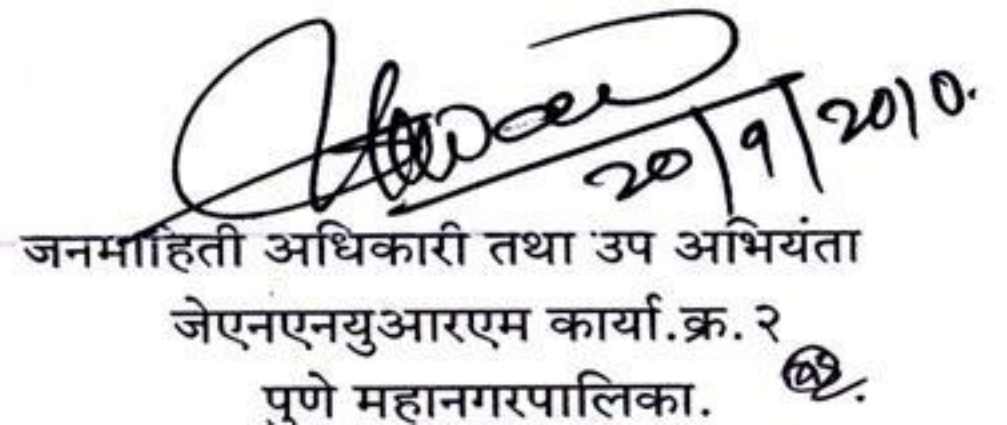 20/9/2010.
जनमाहिती अधिकारी तथा उप अभियंता
जेएनएनयुआरएम कार्या.क्र.२
पुणे महानगरपालिका.